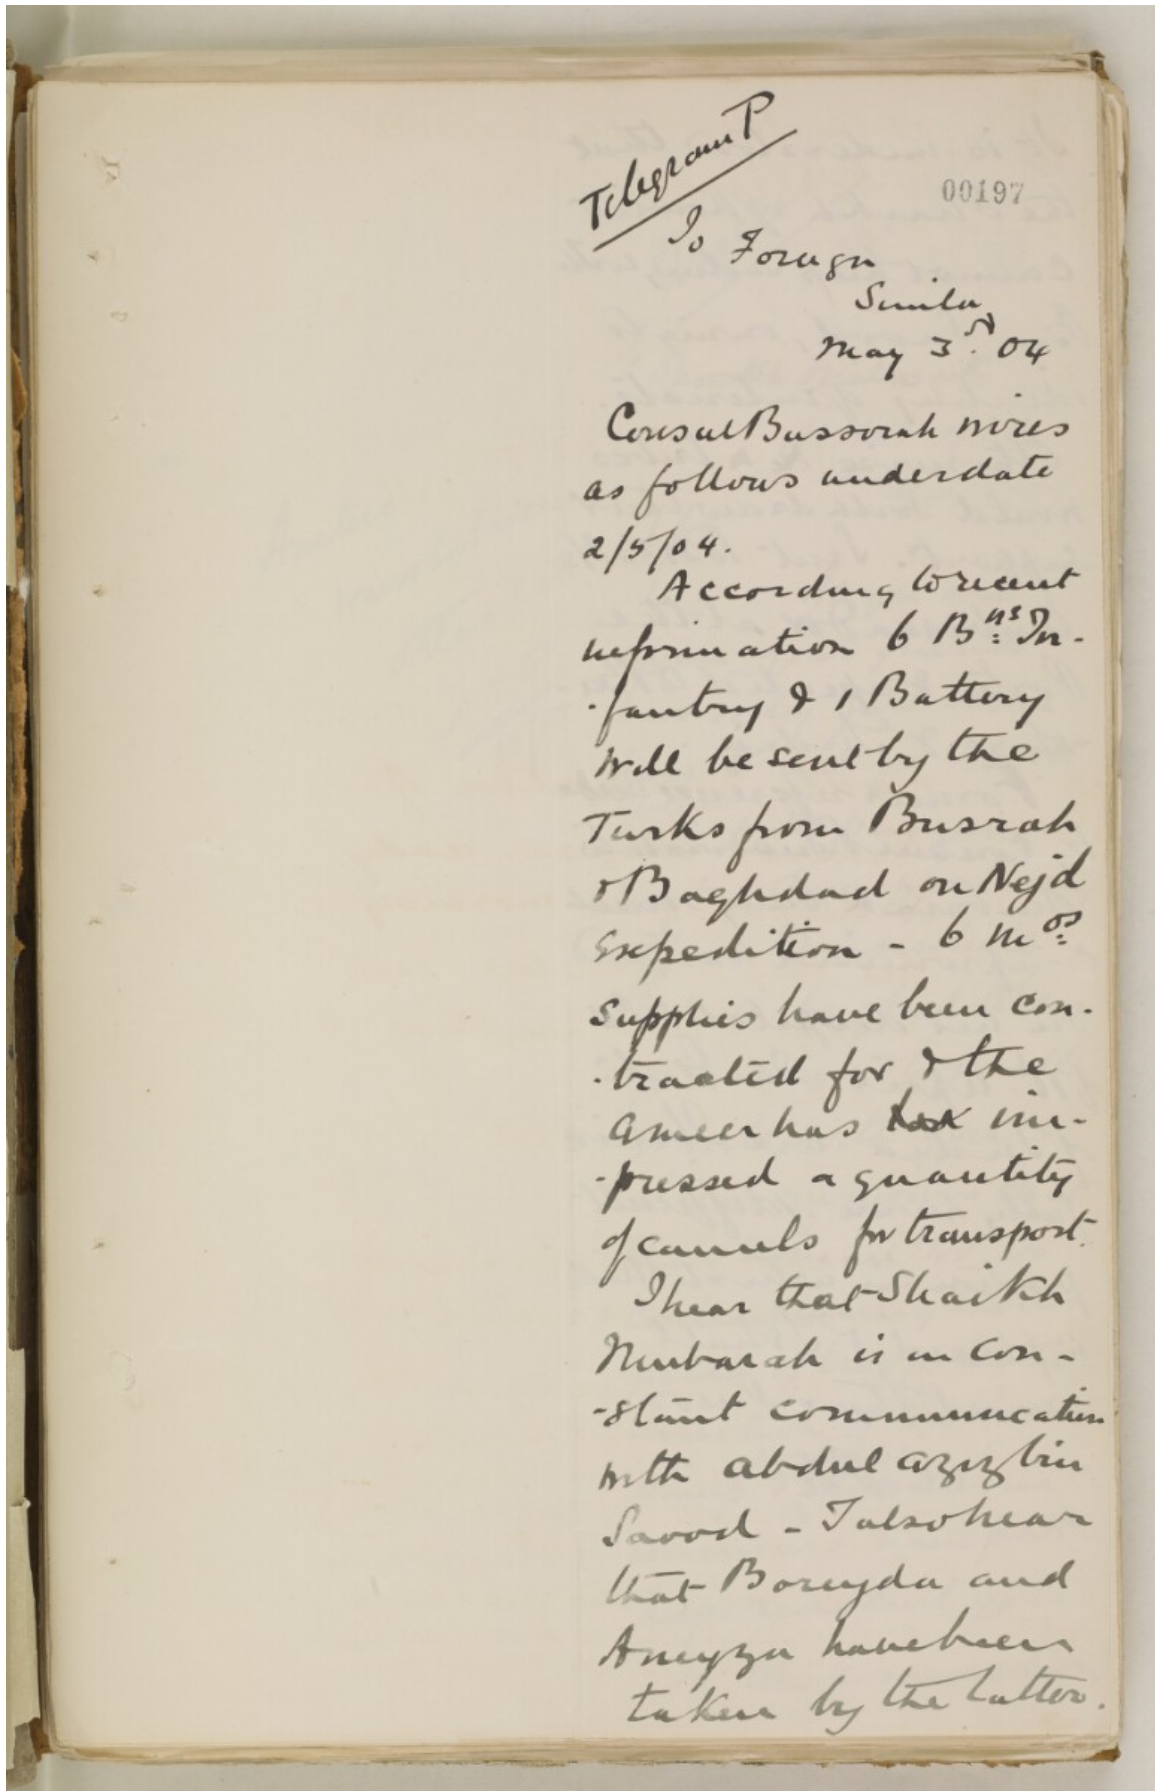 Telegram P
00197
To Foreign
Simla
May 3rd. 04
Consul Bussorah wires
as follows under date
2/5/04.
According to recent
information 6 Bns. In-
-fantry & 1 Battery
will be sent by the
Turks from Busrah
& Baghdad on Nejd
Expedition - 6 mos.
Supplies have been con-
-tracted for & the
Ameer has im-
-pressed a quantity
of camels for transport.
I hear that Shaikh
Mubarak is in con-
-stant communication
with Abdul Aziz bin
Saood - I also hear
that Boreyda and
Aneyza have been
taken by the latter.